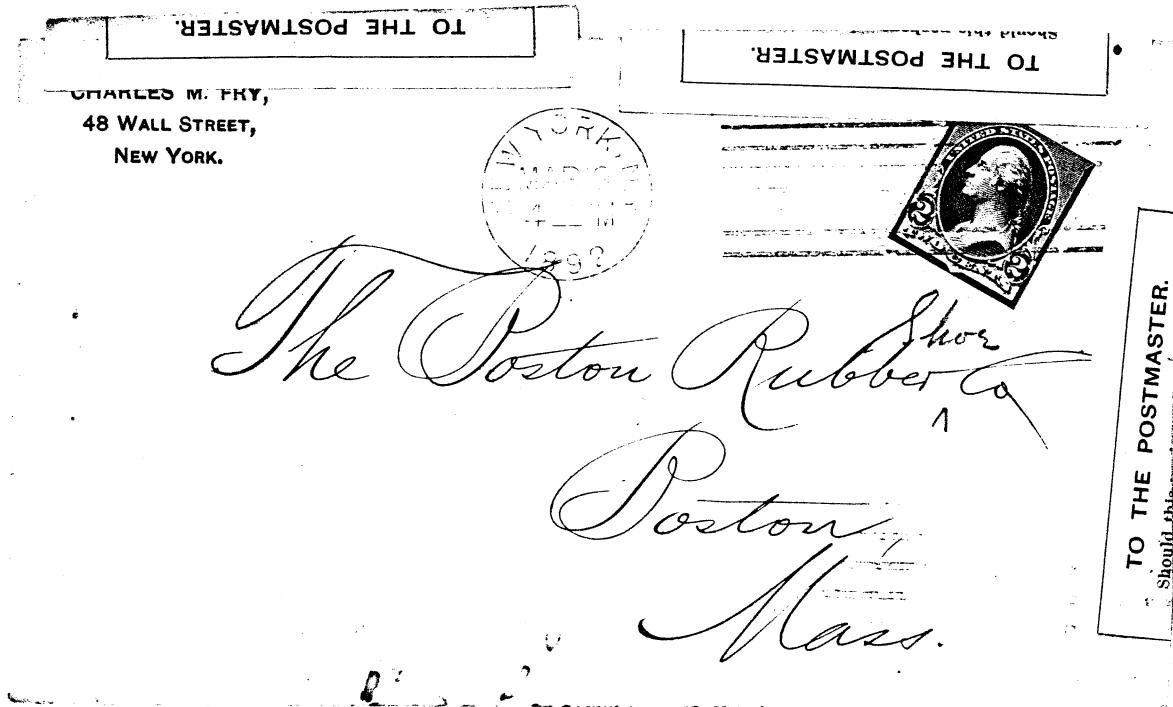 TO THE POSTMASTER.
TO THE POSTMASTER.
CHARLES M. FRY,
48 WALL STREET,
NEW YORK.
NEW YORK, N.Y.
MAR
4 M
UNITED STATES POSTAGE
2 2
The Boston Rubber Shoe Co
Boston,
Mass.
TO THE POSTMASTER.
Should this